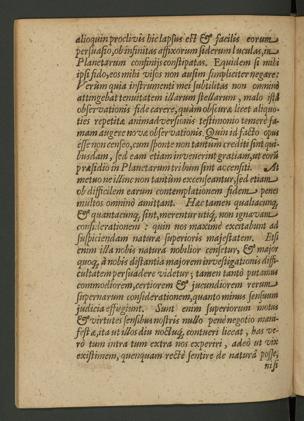 alioquin proclivis hîc lapsus est & facilis eorum
persuasio, ob infinitas affixorum siderum luculas, in
Planetarum confinijs constipatas. Equidem si mihi
ipsi fido, eos mihi visos non ausim simpliciter negare:
Verùm quia instrumenti mei subtilitas non omninò
attingebat tenuitatem illarum stellarum, malo istâ
observationis fide carere, quàm obscurâ licet aliquo-
ties repetitâ animadversionis testimonio temerè fa-
mam augere novæ observationis. Quin id factò opus
esse non censeo, cum sponte non tantùm crediti sint qui-
busdam, sed eam etiam invenerint gratiam, ut eorũ
præsidio in Planetarum tribum sint accensiti. At
metuo ne illinc non tantùm excenseantur, sed etiam
ob difficilem earum contemplationem fidem penes
multos omninò amittant. Hæc tamen qualiacunq;
& quantacunq; sint, merentur utiq; non ignavam
considerationem: quin nos maximè excitabunt ad
suspiciendam naturæ superioris majestatem. Etsi
enim illa nobis naturâ nobilior censetur, & major
quoq; à nobis distantia majorem investigationis diffi-
cultatem persuadere videtur; tamen tantò putamus
commodiorem, certiorem & jucundiorem rerum
supernarum considerationem, quanto minus sensuum
judicia effugiunt. Sunt enim superiorum motus
& virtutes sensibus nostris nullo penè negotio mani-
festæ, ita ut illos diu noctuq; contueri liceat, has ve-
rò tum intra tum extra nos experiri, adeò ut vix
existimem, quenquam rectè sentire de naturâ posse,
nisi